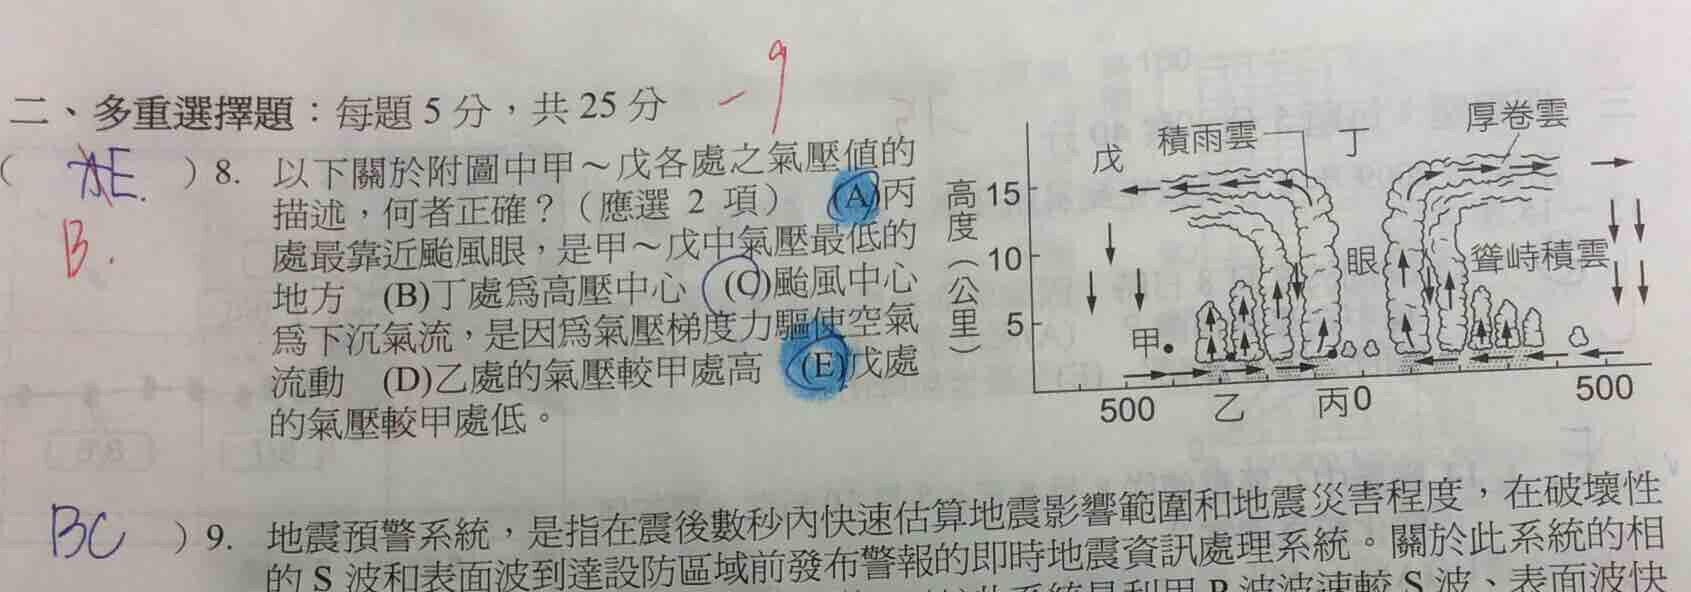 -9
二、多重選擇題：每題 5 分，共 25 分
( AE. ) 8. 以下關於附圖中甲～戊各處之氣壓值的
B.
描述，何者正確？（應選 2 項） (A)丙
處最靠近颱風眼，是甲～戊中氣壓最低的
地方 (B)丁處爲高壓中心 (C)颱風中心
爲下沉氣流，是因爲氣壓梯度力驅使空氣
流動 (D)乙處的氣壓較甲處高 (E)戊處
的氣壓較甲處低。
高度（公里）
15
10
5
戊
積雨雲
丁
厚卷雲
眼
聳峙積雲
甲
500 乙 丙 0 500
BC ) 9. 地震預警系統，是指在震後數秒內快速估算地震影響範圍和地震災害程度，在破壞性
的 S 波和表面波到達設防區域前發布警報的即時地震資訊處理系統。關於此系統的相
P 波波速較 S 波、表面波快